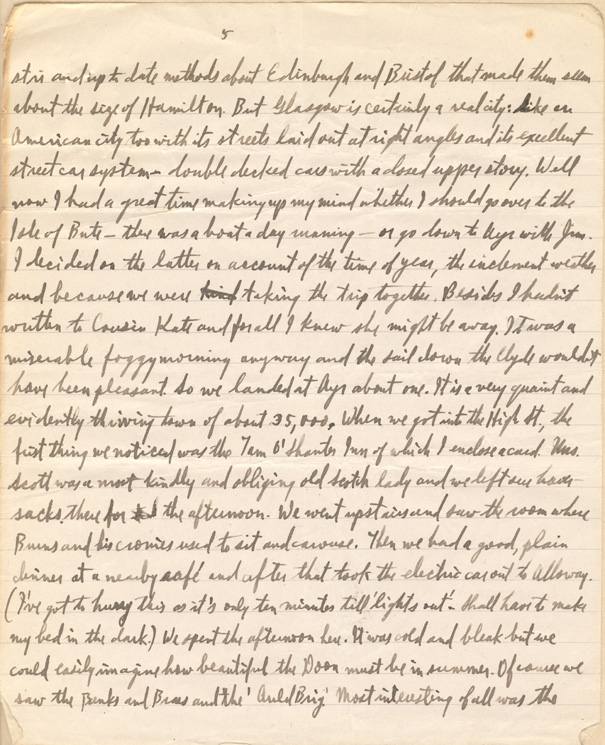 5
stir and up to date methods about Edinburgh and Bristol that made them seem
about the size of Hamilton. But Glasgow is certainly a real city: like an
American city too with its streets laid out at right angles and its excellent
street car system – double decked cars with a closed upper story. Well
now I had a great time making up my mind whether I should go over to the
Isle of Bute – there was a boat a day running – or go down to Ayr with Jim.
I decided on the latter on account of the time of year, the inclement weather
and because we were taking the trip together. Besides I hadn't
written to Cousin Kate and for all I knew she might be away. It was a
miserable foggy morning anyway and the sail down the Clyde wouldn't
have been pleasant. So we landed at Ayr about one. It is a very quaint and
evidently thriving town of about 35,000. When we got into the High St., the
first thing we noticed was the Tam O'Shanter Inn of which I enclose a card. Mrs.
Scott was a most kindly and obliging old Scotch lady and we left our haver-
sacks there for the afternoon. We went upstairs and saw the room where
Burns and his cronies used to sit and carouse. Then we had a good, plain
dinner at a nearby café and after that took the electric car out to Alloway.
(I've got to hurry this as it's only ten minutes till 'lights out' – shall have to make
my bed in the dark.) We spent the afternoon here. It was cold and bleak but we
could easily imagine how beautiful the Doon must be in summer. Of course we
saw the Banks and Braes and the 'Auld Brig' Most interesting of all was the